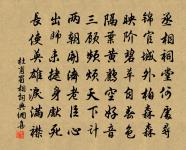 丞相祠堂何處尋
錦官城外柏森森
映階碧草自春色
隔葉黃鸝空好音
三顧頻煩天下計
兩朝開濟老臣心
出師未捷身先死
長使英雄淚滿襟
杜甫蜀相詞典網